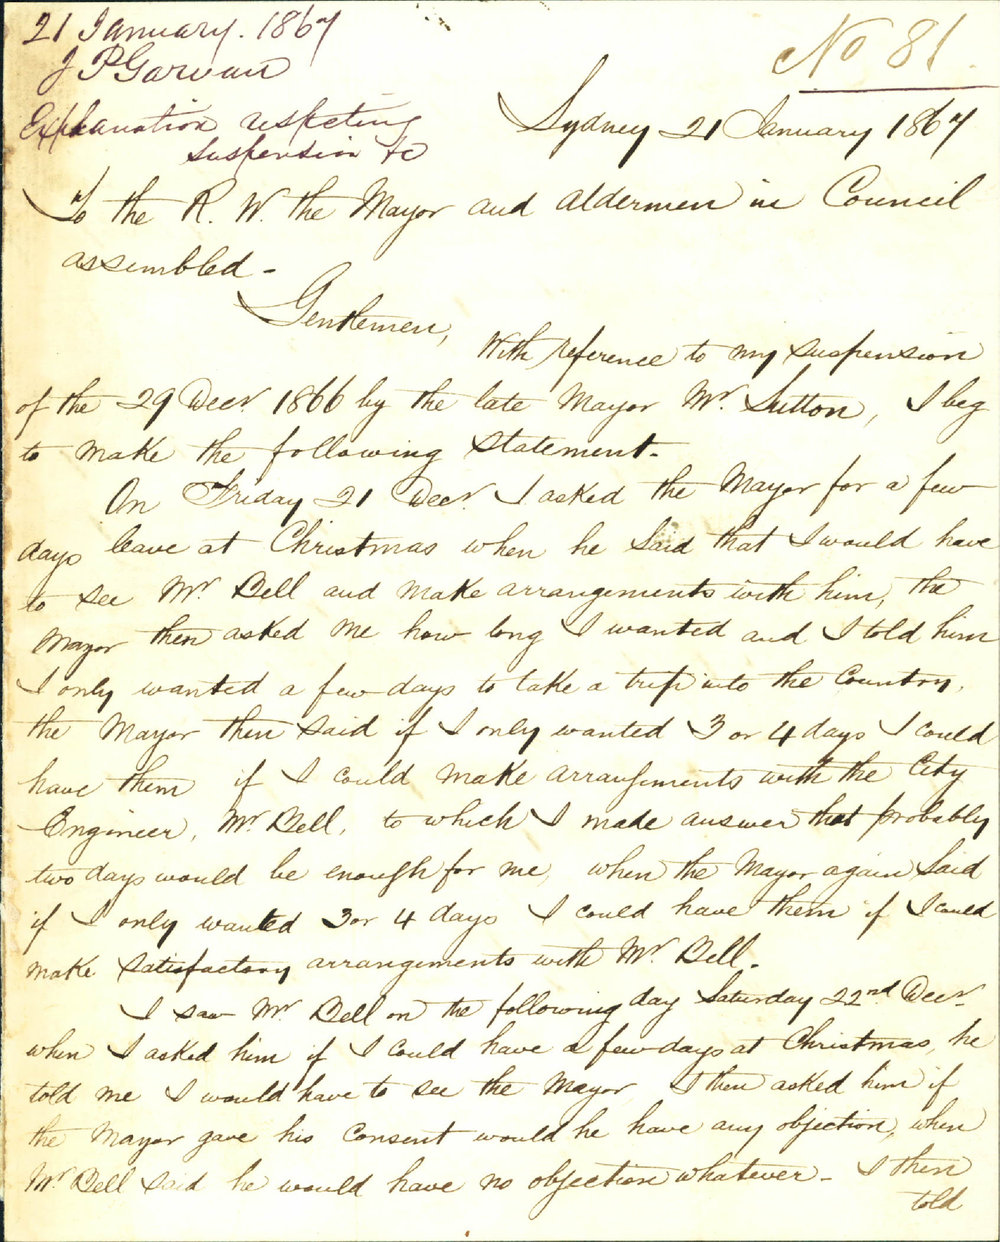 21 January. 1867
J P Garvan
Explanation respecting
suspension &c
No 81.
Sydney 21 January 1867
To the R. W. the Mayor and Aldermen in Council
assembled -
Gentlemen,
With reference to my suspension
of the 29 Decr. 1866 by the late Mayor Mr. Sutton, I beg
to make the following statement.
On Friday 21 Decr. I asked the Mayor for a few
days leave at Christmas when he said that I would have
to see Mr. Bell and make arrangements with him, the
Mayor then asked me how long I wanted and I told him
I only wanted a few days to take a trip into the Country,
the Mayor then said if I only wanted 3 or 4 days I could
have them if I could make arrangements with the City
Engineer, Mr. Bell, to which I made answer that probably
two days would be enough for me, when the Mayor again said
if I only wanted 3 or 4 days I could have them if I could
make satisfactory arrangements with Mr. Bell.
I saw Mr. Bell on the following day Saturday 22nd Decr.
when I asked him if I could have a few days at Christmas, he
told me I would have to see the Mayor I then asked him if
the Mayor gave his consent would he have any objection, when
Mr. Bell said he would have no objection whatever - I then
told